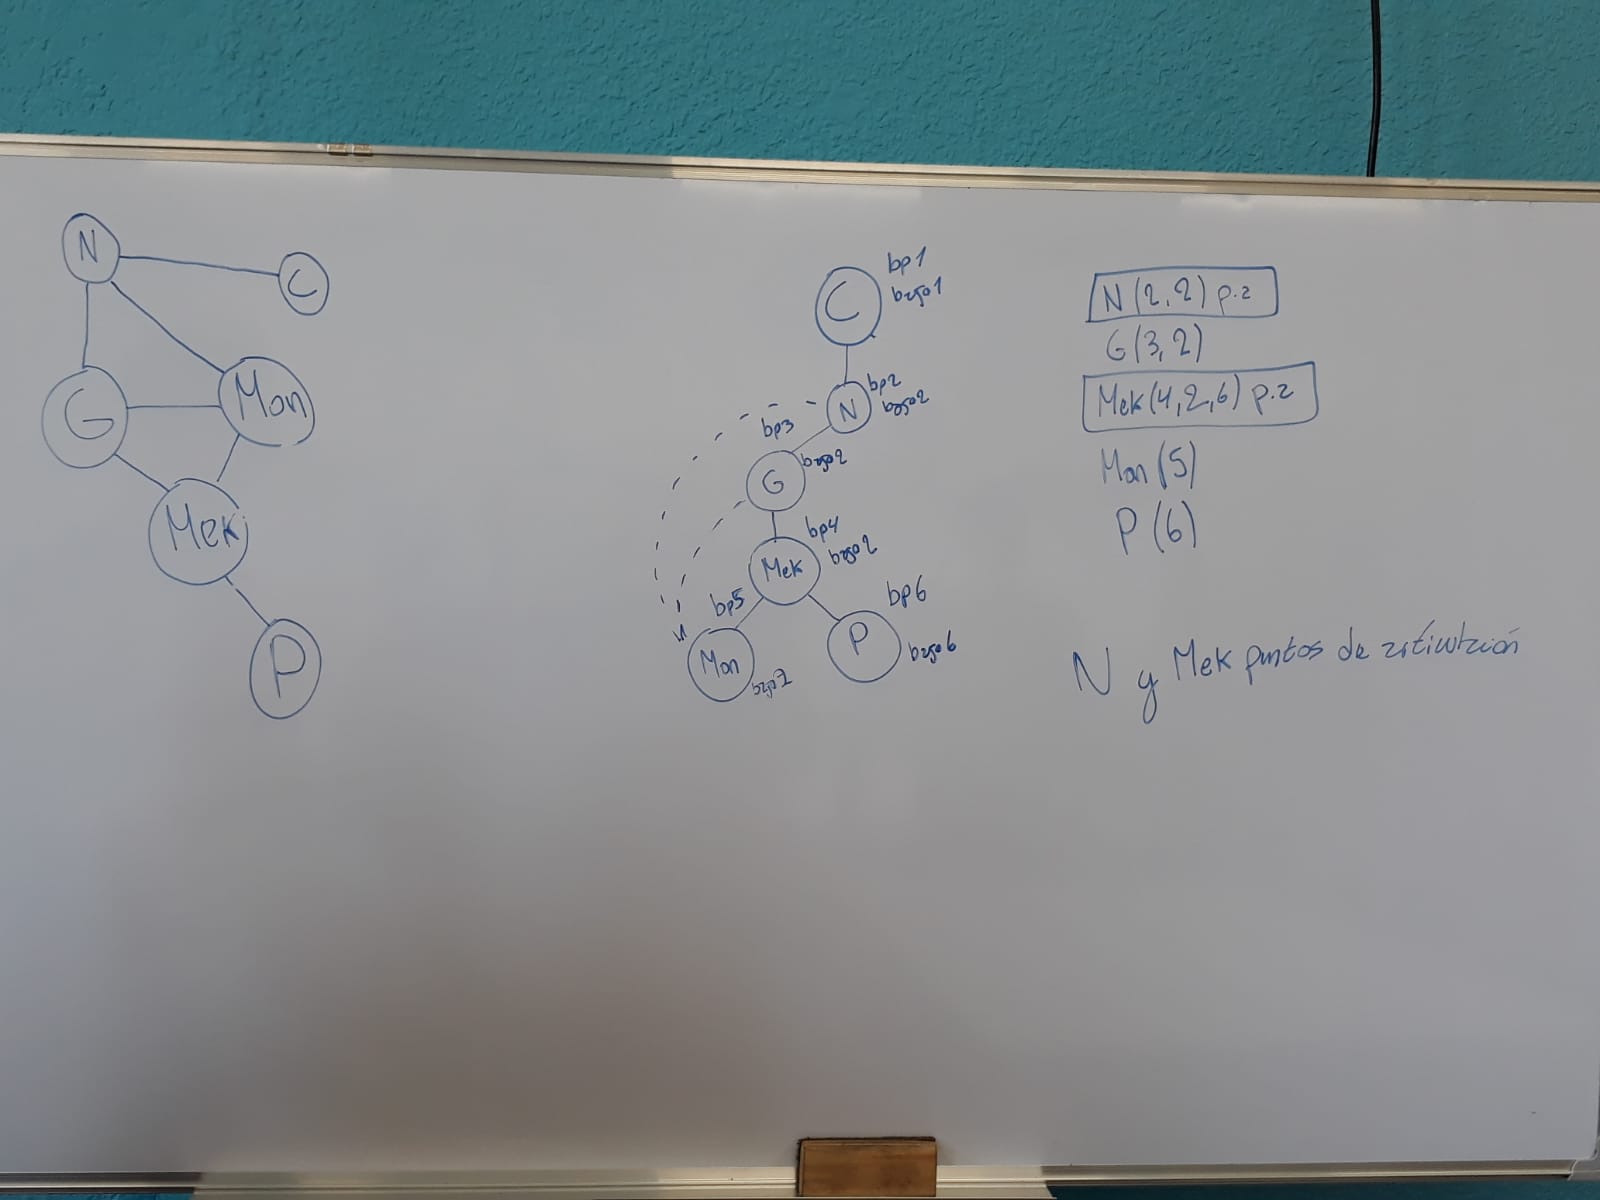 N
C
G
Mon
Mek
P
C
bp1
bajo1
N
bp2
bajo2
bp3
G
bajo2
bp4
Mek
bajo2
bp5
Mon
bajo2
bp6
P
bajo6
N(2,2) p.a
G(3,2)
Mek(4,2,6) p.a
Mon(5)
P(6)
N y Mek puntos de articulación